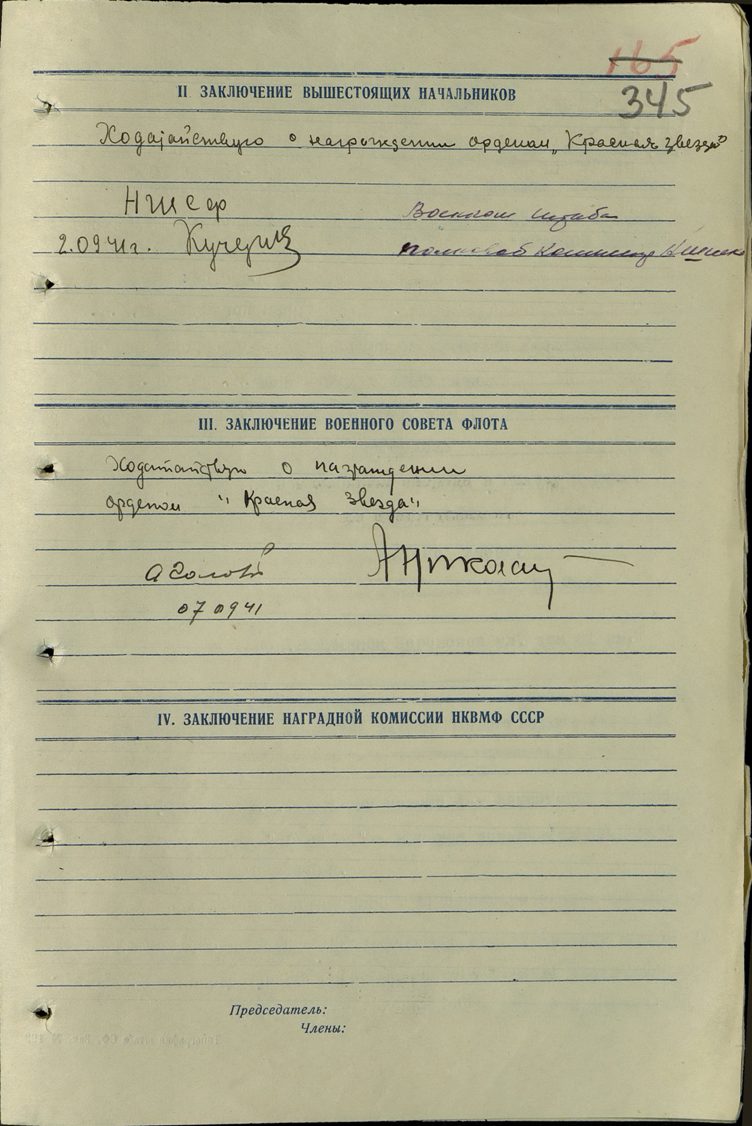 165
II. ЗАКЛЮЧЕНИЕ ВЫШЕСТОЯЩИХ НАЧАЛЬНИКОВ
345
Ходатайствую о награждении орденом „Красная звезда"
НШ СФ
Военком штаба
2.09 41г. Кучеров
полковой комиссар
III. ЗАКЛЮЧЕНИЕ ВОЕННОГО СОВЕТА ФЛОТА
Ходатайствую о награждении
орденом "Красная Звезда"
А Голов
А Николаев
07 09 41
IV. ЗАКЛЮЧЕНИЕ НАГРАДНОЙ КОМИССИИ НКВМФ СССР
Председатель:
Члены: